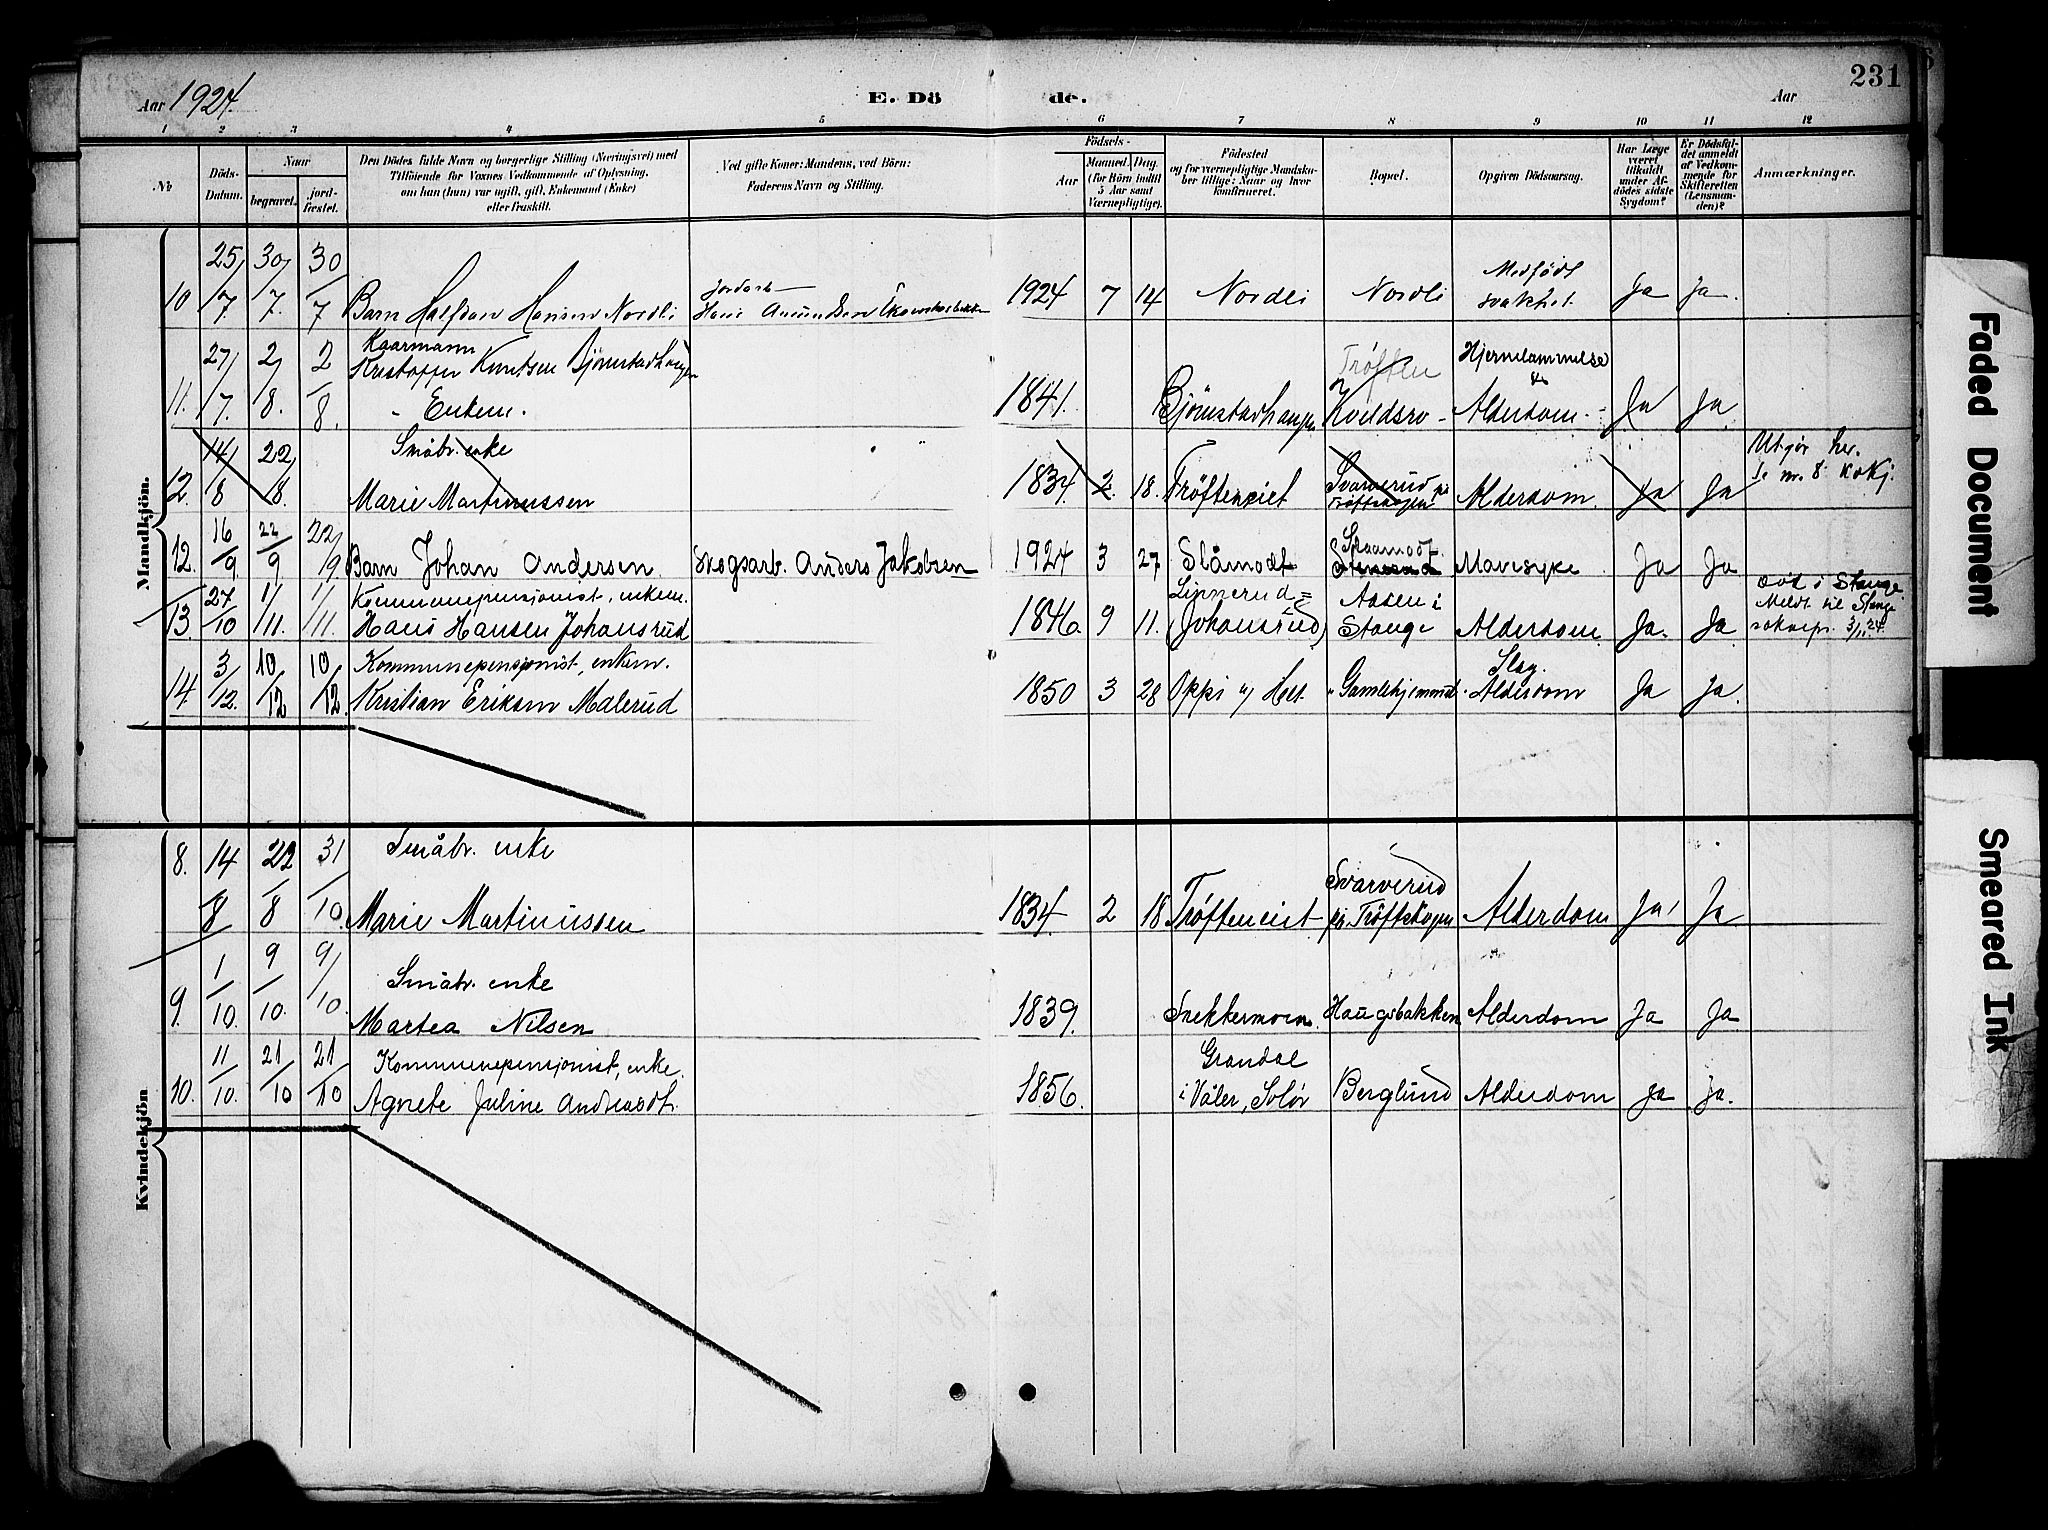 Aar 1924. E. Dö de. Aar 231
1 2 3 4 5 6 7 8 9 10 11 12
Nr.
Döds-Datum.
Naar
begravet.
jord-fæstet.
Den Dödes fulde Navn og borgerlige Stilling (Næringsvei) med
Tilföiende for Voxnes Vedkommende af Oplysning,
om han (hun) var ugift, gift, Enkemand (Enke)
eller fraskilt.
Ved gifte Koner: Mandens, ved Börn:
Faderens Navn og Stilling.
Födsels-
Aar
Maaned. Dag.
(for Börn indtil
5 Aar samt
Værnepligtige).
Födested
og for værnepligtige Mandska-
ber tillige: Naar og hvor
konfirmeret.
Bopæl.
Opgiven Dödsaarsag.
Har Læge
været
tilkaldt
under Af-
dödes sidste
Sygdom?
Er Dödsfal-
det anmeldt
af Vedkom-
mende for
Skifteretten
(Lensman-
den)?
Anmærkninger.
Mandkjön.
10 25/7 30/7. 30/7 Barn Halfdan Hansen Nordli
Jordarb
Hans Amundsen
1924 7 14 Nordli Nordli Medfödt
svakhet. Ja Ja.
11. 27/7. 2/8. 2/8. Kaarmann
Kristoffer Knutsen Björnstadhaugen
- Enkem.
1841. Björnstadhaugen Trøften
Kveldsro - Hjernelammelse
&
Alderdom - Ja Ja.
12. 14/8 22/8. Småbr. enke
Marie Martinussen
1834. 2. 18. Trøfteneiet Svarverud på
Trøftskogen Alderdom. Ja Ja Utgår her.
Se nr. 8 kvkj.
12. 16/9. 22/9 22/9 Barn Johan Andersen. Skogsarb. Anders Jakobsen
1924 3 27 Slåmodt Slaamodt Mavesyke Ja Ja
13 27/10 1/11. 1/11. Kommunepensjonist, enkem.
Hans Hansen Johansrud
1846. 9 11. Linnerud =
(Johansrud) Aasen i
Stange Alderdom. Ja. Ja. Död i Stange.
Meldt til Stange
soknepr. 3/11.24.
14. 3/12. 10/12 10/12. Kommunepensjonist, enkem.
Kristian Eriksen Malerud
1850 3 28 Oppi Gamlehjemmet Slag.
Alderdom Ja Ja.
Kvindekjön
8. 14/8 22/8 31/10. Småbr. enke
Marie Martinussen
1834. 2 18 Trøfteneiet Svarverud
på Trøftskogen Alderdom Ja Ja.
9. 1/10. 9/10. 9/10. Småbr. enke
Martea Nilsen
1839. Snekkermoen. Haugsbakken Alderdom Ja Ja.
10. 11/10. 21/10 21/10 Kommunepensjonist, enke.
Agnete Juline Andreasdt.
1856. Grandal
i Våler, Solør Berglund Alderdom Ja Ja.
Faded Document
Smeared Ink